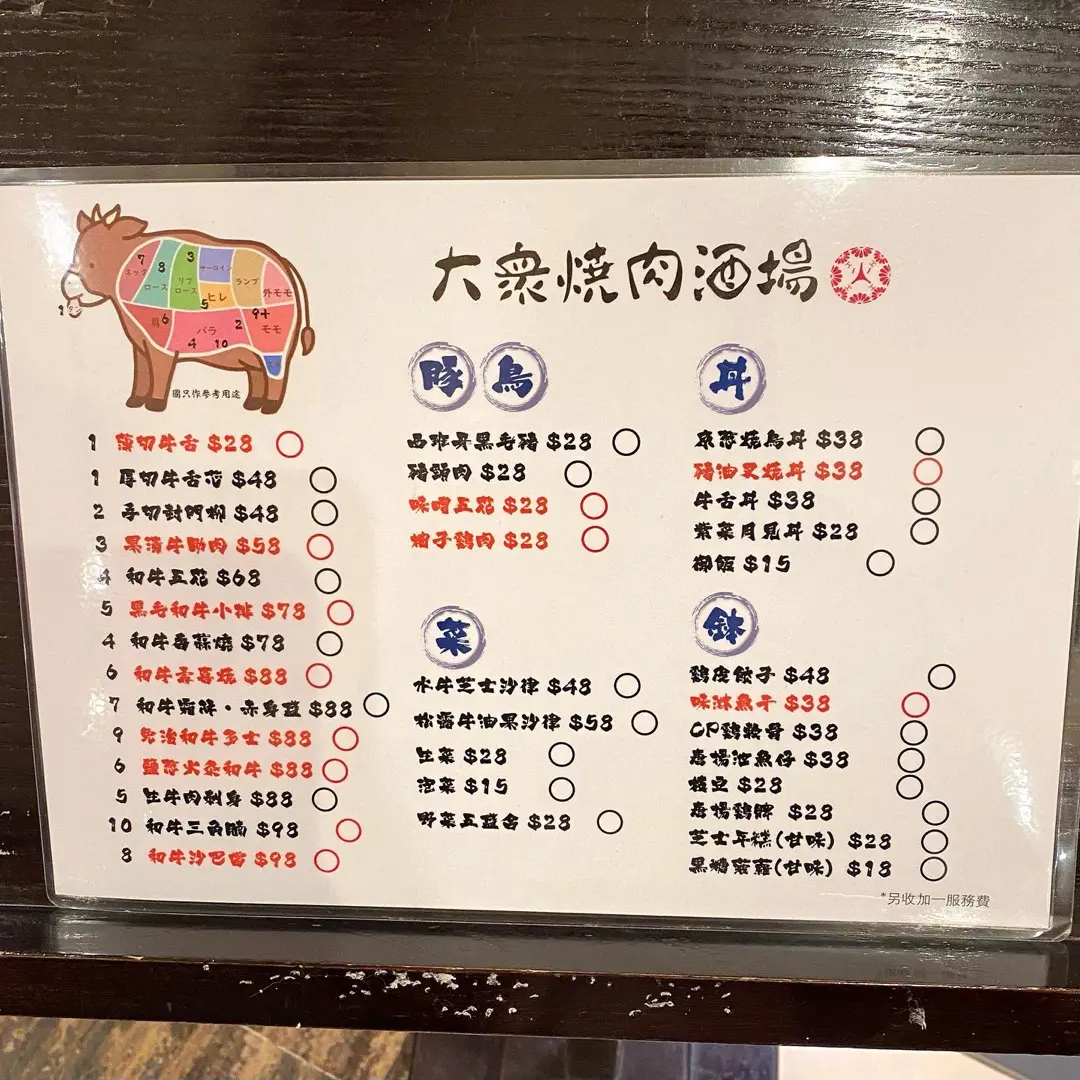 大衆燒肉酒場
7
8
3
ネック
ロース
リブ
ロース
サーロイン
ヒレ
ランプ
外モモ
1
タン
肩6
バラ
5
2
9+
モモ
4 10
スネ
圖只作參考用途
1 薄切牛舌 $28
1 厚切牛舌芯 $48
2 厚切封門柳 $48
3 果漬牛肋肉 $58
4 和牛五花 $68
5 黑毛和牛小排 $78
4 和牛香蒜燒 $78
6 和牛壽喜燒 $88
7 和牛霜降・赤身盛 $88
9 免治和牛多士 $88
6 鹽蔥火灸和牛 $88
5 生牛肉刺身 $88
10 和牛三角腩 $98
8 和牛沙巴雷 $98
豚 鳥
西班牙黑毛豬 $28
豬頸肉 $28
味噌五花 $28
柚子雞肉 $28
菜
水牛芝士沙律 $48
松露牛油果沙律 $58
生菜 $28
泡菜 $15
野菜五盛合 $28
丼
京蔥燒鳥丼 $38
豬油叉燒丼 $38
牛舌丼 $38
紫菜月見丼 $28
御飯 $15
鉢
雞皮餃子 $48
味淋魚干 $38
CP雞軟骨 $38
唐揚池魚仔 $38
枝豆 $28
唐揚雞髀 $28
芝士年糕(甘味) $28
黑糖菠蘿(甘味) $18
*另收加一服務費